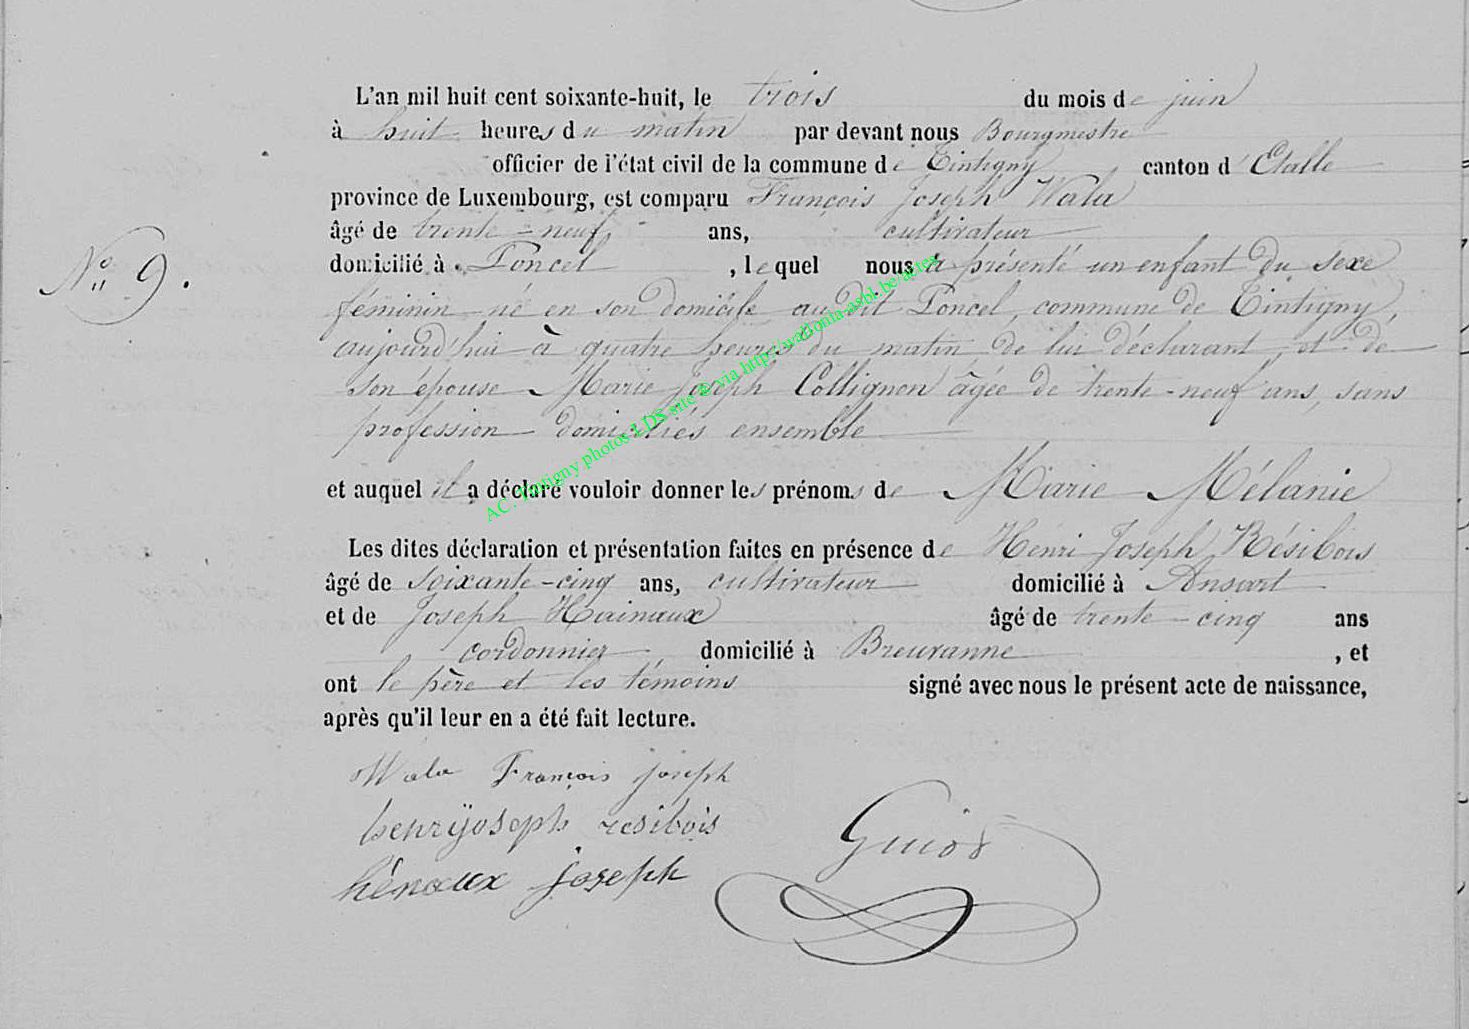 L'an mil huit cent soixante-huit, le trois du mois de juin
à huit heures du matin par devant nous Bourgmestre
officier de l'état civil de la commune de Tintigny canton d'Etalle
province de Luxembourg, est comparu François Joseph Wala
âgé de trente-neuf ans, cultivateur
N° 9.
domicilié à Poncel, lequel nous a présenté un enfant du sexe
féminin né en son domicile au dit Poncel, commune de Tintigny,
aujourd'hui à quatre heures du matin, de lui déclarant, et de
son épouse Marie Joseph Collignon âgée de trente-neuf ans, sans
profession domiciliés ensemble
et auquel il a déclaré vouloir donner les prénoms de Marie Mélanie
Les dites déclaration et présentation faites en présence de Henri Joseph Résibois
âgé de soixante-cinq ans, cultivateur domicilié à Ansart
et de Joseph Hainaux âgé de trente-cinq ans
cordonnier domicilié à Breuvanne, et
ont le père et les témoins signé avec nous le présent acte de naissance,
après qu'il leur en a été fait lecture.
Wala François joseph
henrÿjoseph resibois
Guiot
hénaux joseph
AC. Tintigny photos LDS site © via http://wallonia-asbl.be/actes